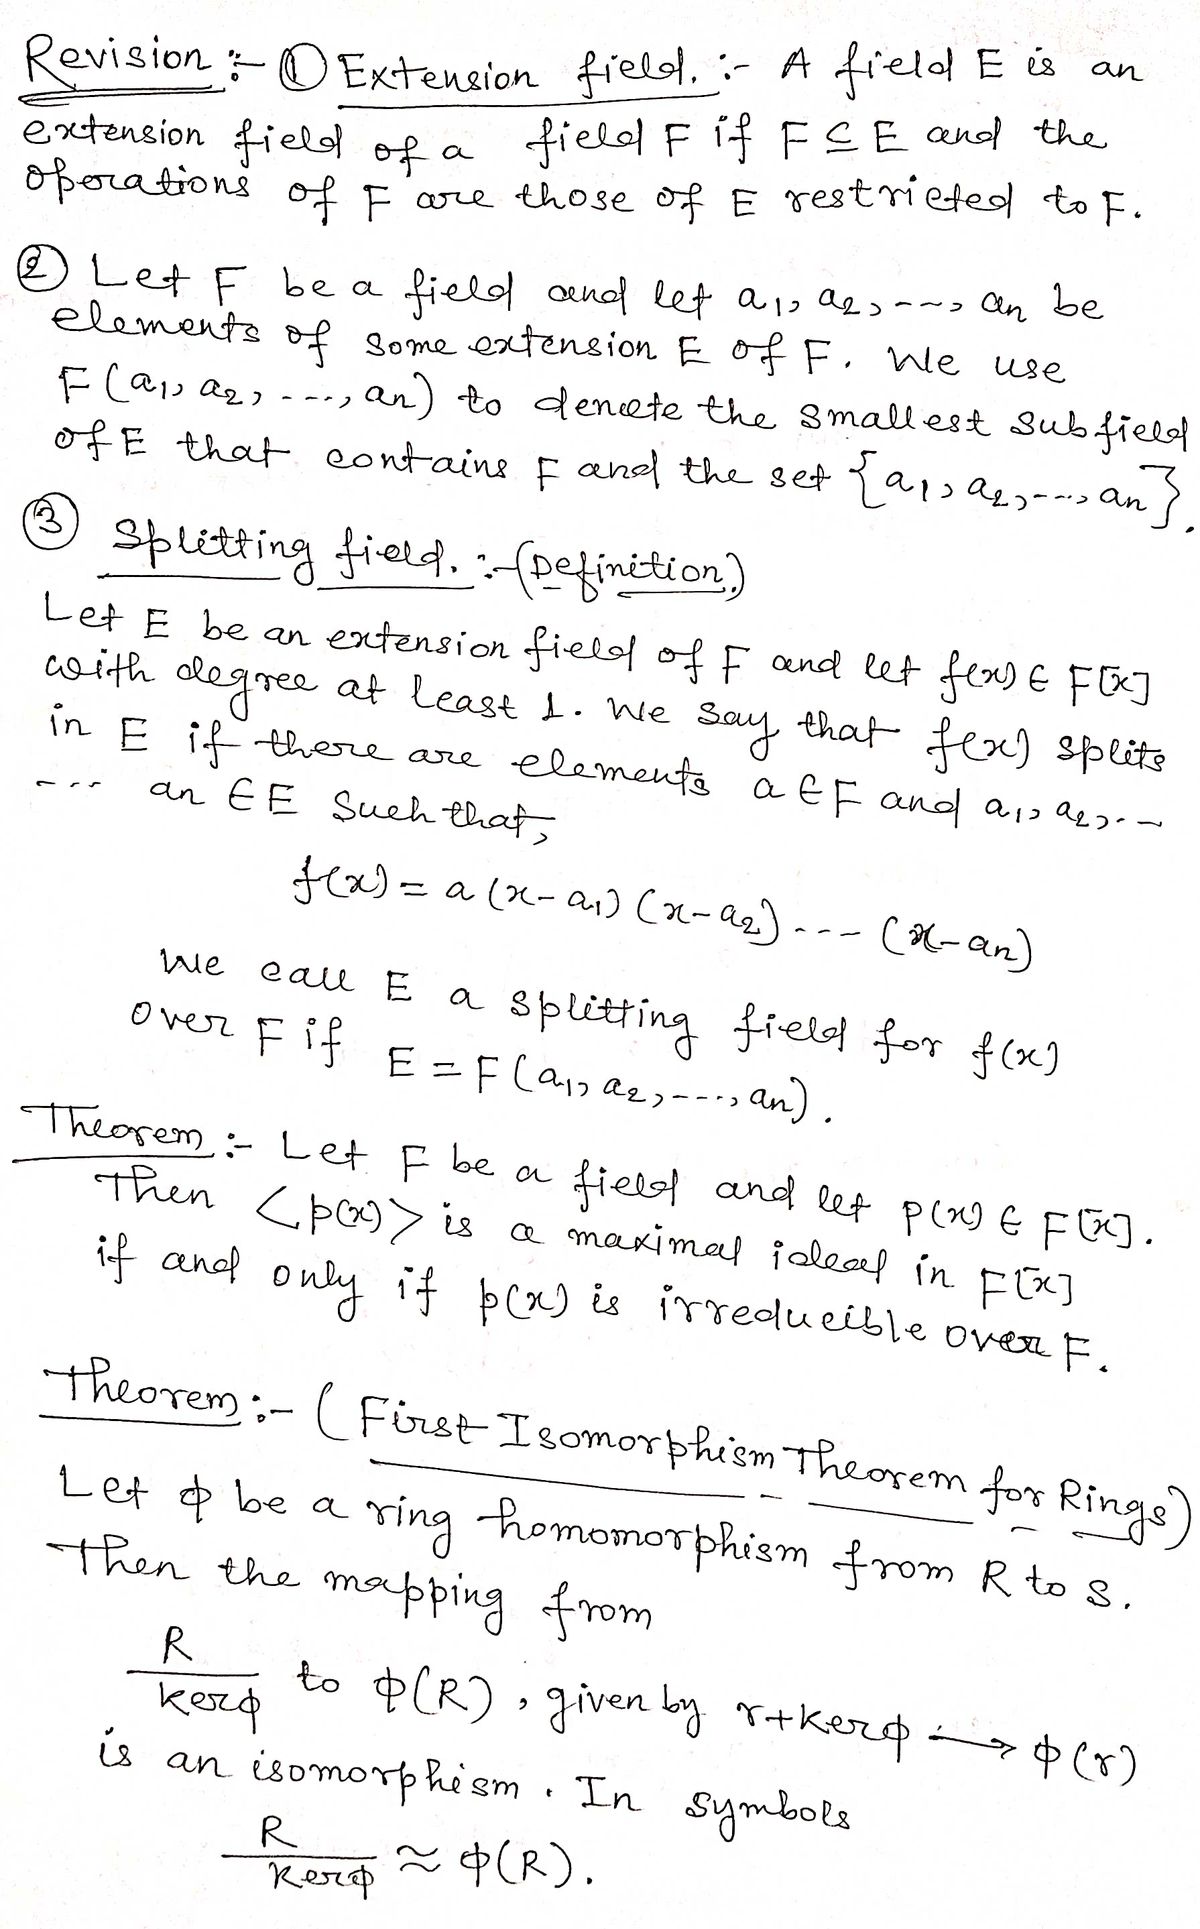 Revision :- ① Extension field. :- A field E is an
extension field of a field F if F ⊆ E and the
operations of F are those of E restricted to F.
② Let F be a field and let a1, a2, ---, an be
elements of some extension E of F. We use
F(a1, a2, ---, an) to denote the smallest subfield
of E that contains F and the set {a1, a2, ---, an}.
③ Splitting field. :- (Definition)
Let E be an extension field of F and let f(x) ∈ F[x]
with degree at least 1. We say that f(x) splits
in E if there are elements a ∈ F and a1, a2, --
--- an ∈ E such that,
f(x) = a (x-a1) (x-a2) --- (x-an)
We call E a splitting field for f(x)
over F if E = F(a1, a2, ---, an).
Theorem :- Let F be a field and let p(x) ∈ F[x].
Then <p(x)> is a maximal ideal in F[x]
if and only if p(x) is irreducible over F.
Theorem :- (First Isomorphism Theorem for Rings)
Let ϕ be a ring homomorphism from R to S.
Then the mapping from
R/kerϕ to ϕ(R), given by r+kerϕ → ϕ(r)
is an isomorphism. In symbols
R/kerϕ ≈ ϕ(R).